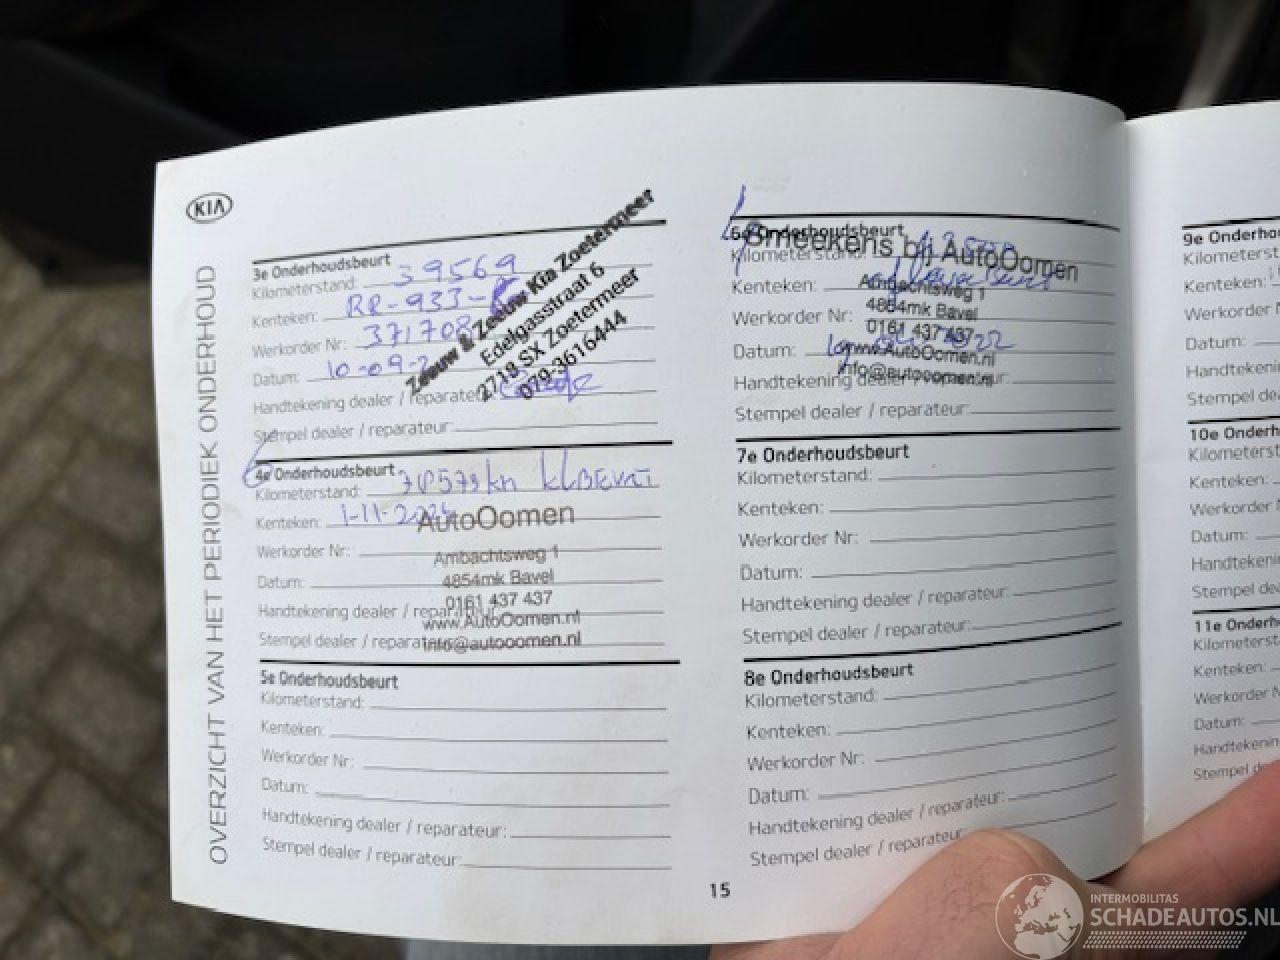 KIA
OVERZICHT VAN HET PERIODIEK ONDERHOUD
3e Onderhoudsbeurt
Kilometerstand: 39569
Kenteken: RR-933-
Werkorder Nr: 371708
Datum: 10-09-2
Handtekening dealer / reparateur:
Stempel dealer / reparateur:
Zeeuw & Zeeuw Kia Zoetermeer
Edelgasstraat 6
2718 SX Zoetermeer
079-3616444
4e Onderhoudsbeurt
Kilometerstand:
Kenteken: 1-11-2024
Werkorder Nr:
Datum:
Handtekening dealer / reparateur:
Stempel dealer / reparateur:
AutoOomen
Ambachtsweg 1
4854mk Bavel
0161 437 437
www.AutoOomen.nl
info@autooomen.nl
5e Onderhoudsbeurt
Kilometerstand:
Kenteken:
Werkorder Nr:
Datum:
Handtekening dealer / reparateur:
Stempel dealer / reparateur:
6e Onderhoudsbeurt
Kilometerstand:
Kenteken:
Werkorder Nr:
Datum:
Handtekening dealer / reparateur:
Stempel dealer / reparateur:
Smeekens bij AutoOomen
Ambachtsweg 1
4854mk Bavel
0161 437 437
www.AutoOomen.nl
info@autooomen.nl
7e Onderhoudsbeurt
Kilometerstand:
Kenteken:
Werkorder Nr:
Datum:
Handtekening dealer / reparateur:
Stempel dealer / reparateur:
8e Onderhoudsbeurt
Kilometerstand:
Kenteken:
Werkorder Nr:
Datum:
Handtekening dealer / reparateur:
Stempel dealer / reparateur
15
9e Onderhou
Kilometerst
Kenteken:
Werkorder
Datum:
Handteken
Stempel de
10e Onderh
Kilometerst
Kenteken:
Werkorder
Datum:
Handteken
Stempel de
11e Onderh
Kilometerst
Kenteken:
Werkorder N
Datum:
Handtekenin
Stempel de
INTERMOBILITAS
SCHADEAUTOS.NL